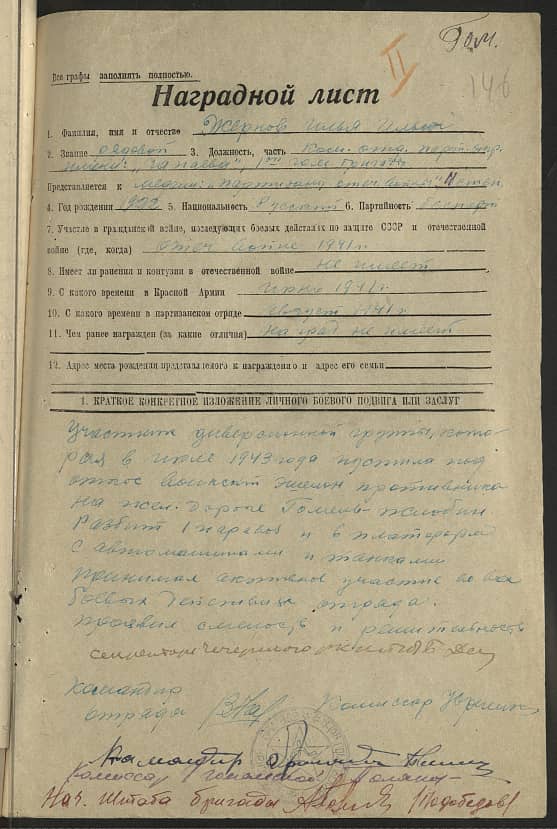 Гом.
II
146
Все графы заполнять полностью.
Наградной лист
1. Фамилия, имя и отчество Жернов Илья Ильич
2. Звание рядовой 3. Должность, часть Ком. отд. парт. отр.
имени "Чапаева", 1ой Гом. бригады
Представляется к медали: "Партизану отеч. войны" II степ.
4. Год рождения 1922 5. Национальность Русский 6. Партийность беспарт
7. Участие в гражданской войне, последующих боевых действиях по защите СССР и отечественной
войне (где, когда) Отеч войне 1941 г.
8. Имеет ли ранения и контузии в отечественной войне не имеет
9. С какого времени в Красной Армии июнь 1941 г.
10. С какого времени в партизанском отряде август 1941 г.
11. Чем ранее награжден (за какие отличия) наград не имеет
12. Адрес места рождения представляемого к награждению и адрес его семьи
1. КРАТКОЕ КОНКРЕТНОЕ ИЗЛОЖЕНИЕ ЛИЧНОГО БОЕВОГО ПОДВИГА ИЛИ ЗАСЛУГ
Участник диверсионной группы, кото-
рая в июле 1943 года пустила под
откос воинский эшелон противника
на жел. дороге Гомель-Жлобин.
Разбит 1 паровоз и 6 платформ
с автомашинами и танками
Принимал активное участие во всех
боевых действиях отряда.
Проявил смелость и решительность
секретарь Чечерского
Командир
отряда
Комиссар
Командир
комиссар Гомельской
Нач. штаба бригады